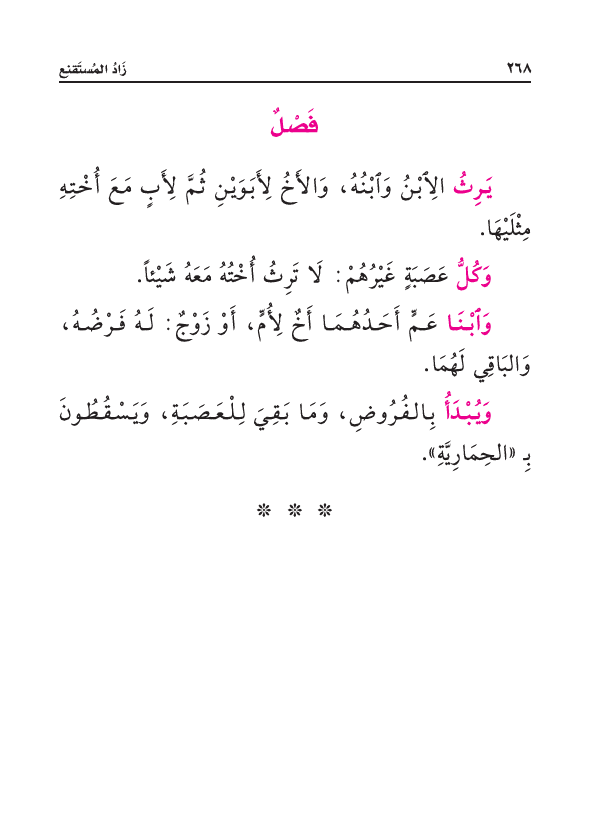 ٢٦٨ زَادُ المُستَقنِع
فَصْلٌ
يَرِثُ الِٱبْنُ وَٱبْنُهُ، وَالأَخُ لِأَبَوَيْنِ ثُمَّ لِأَبٍ مَعَ أُخْتِهِ
مِثْلَيْهَا.
وَكُلُّ عَصَبَةٍ غَيْرُهُمْ: لَا تَرِثُ أُخْتُهُ مَعَهُ شَيْئاً.
وَٱبْنَا عَمٍّ أَحَدُهُمَا أَخٌ لِأُمٍّ، أَوْ زَوْجٌ: لَهُ فَرْضُهُ،
وَالبَاقِي لَهُمَا.
وَيُبْدَأُ بِالفُرُوضِ، وَمَا بَقِيَ لِلْعَصَبَةِ، وَيَسْقُطُونَ
بِـ «الحِمَارِيَّةِ».